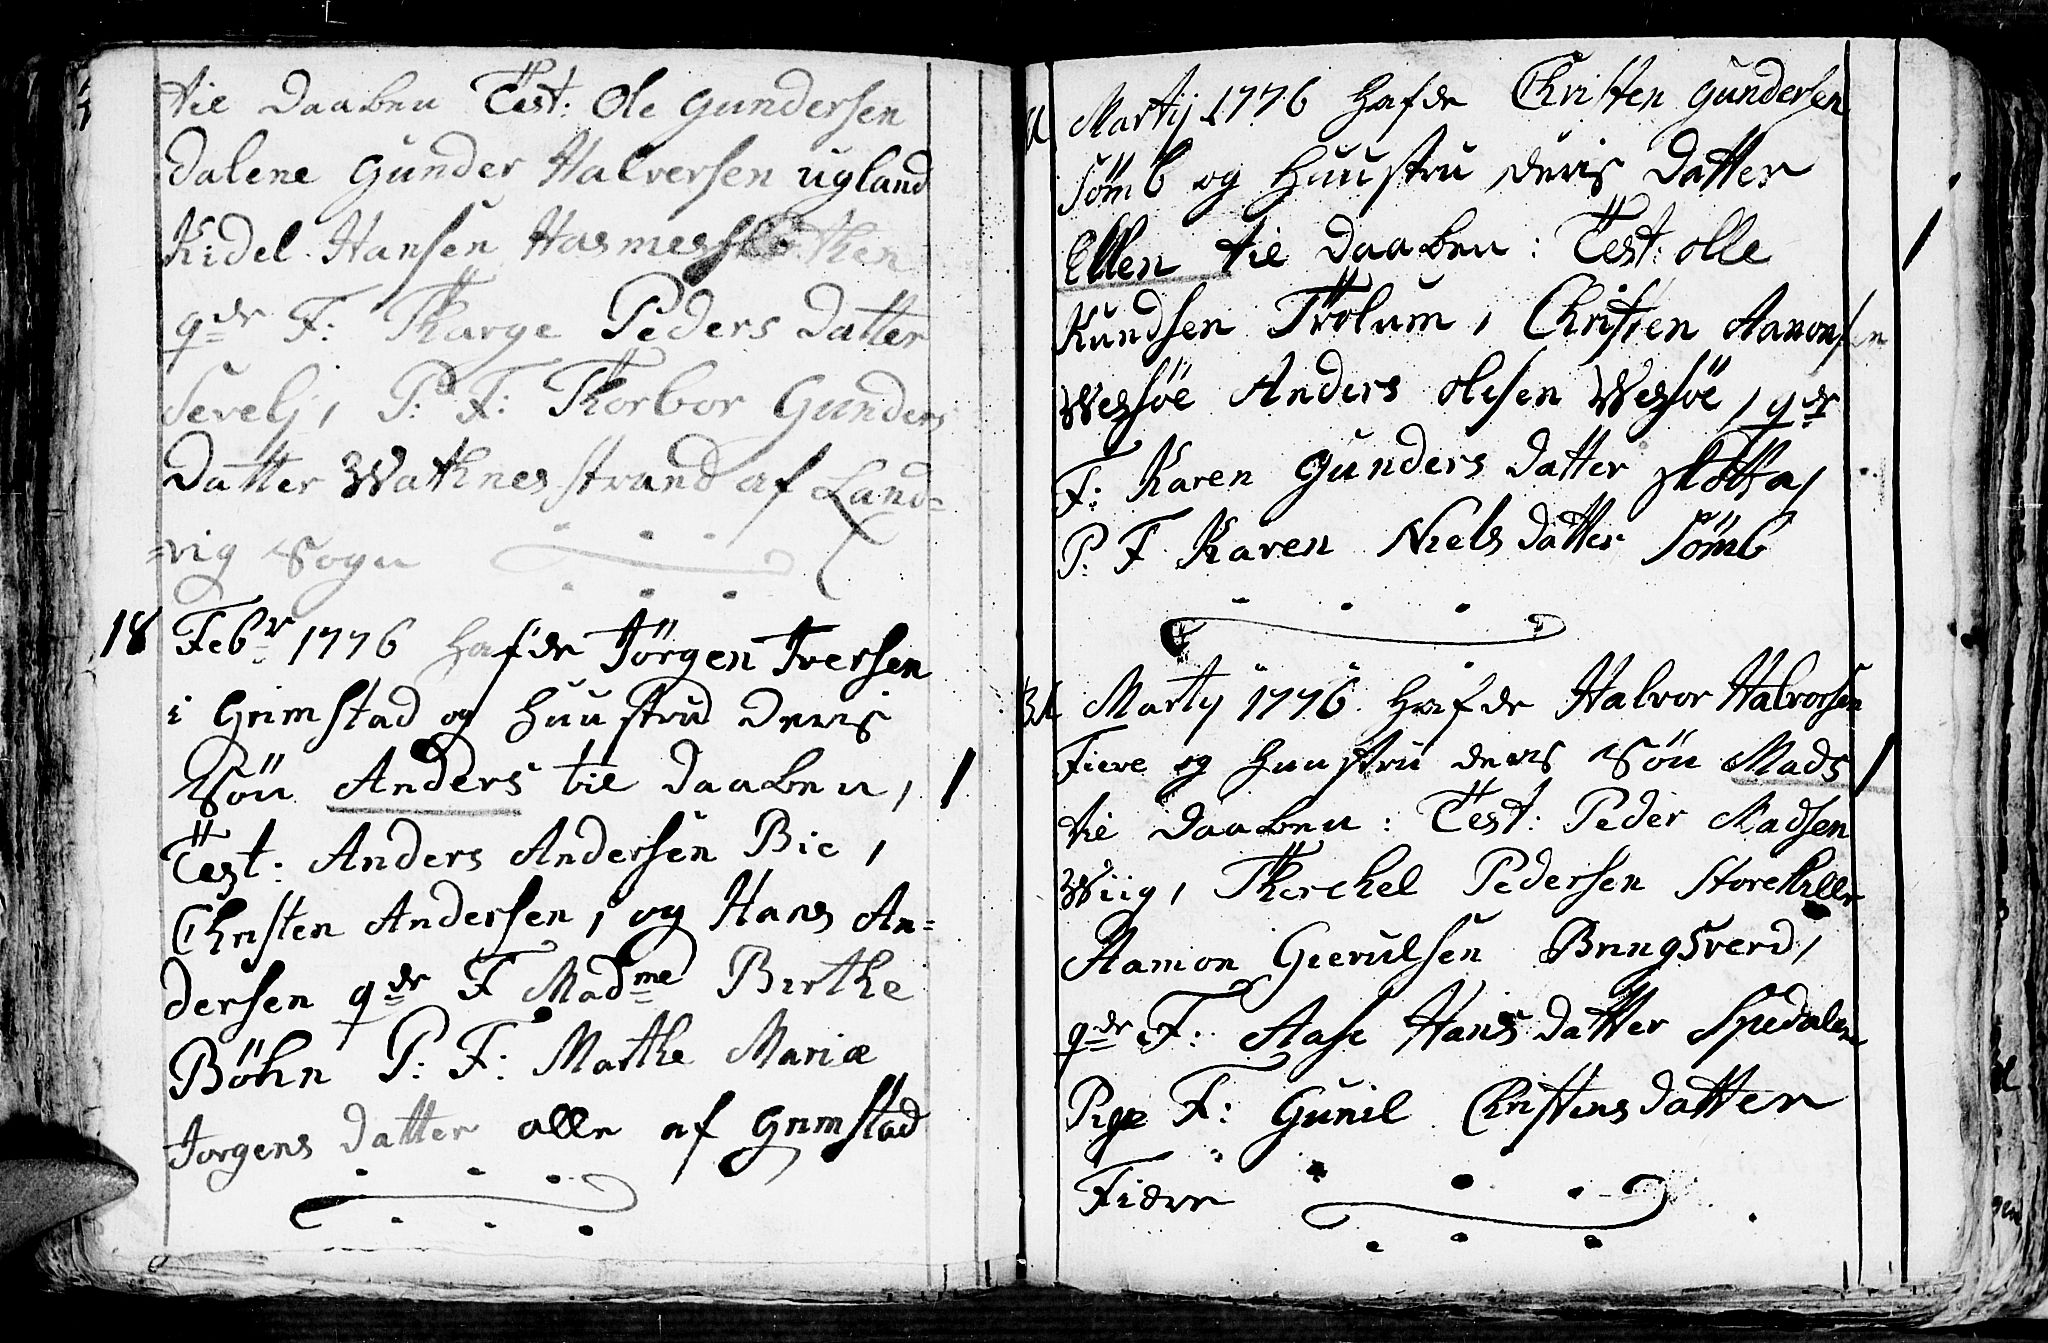 til Daaben Test: Ole Gundersen
Dalene Gunder Halversen ugland
Kidel Hansen
qdr F: Tharge Peders Datter
Sevelj, P: F: Thorbor Gunders
Datter Wathnes strand af Land=
=vig Sogn
18 Febr 1776 hafde Jörgen Iversen
i Grimstad og Huustru deris
Sön Anders til Daaben,
Test: Anders Andersen Bie,
Christen Andersen, og Hans An=
dersen qdr F Madme Birthe
Böhn P: F: Marthe Mariæ
Jorgens Datter alle af Grimstad
Martij 1776 hafde Christen Gundersen
Sömb og Huustru deris Datter
Ellen til Daaben: Test: olle
Kundsen Trölum, Christen Aamonsen
Wessöe Anders olesen Wessöe, qdr
F: Karen Gunders Datter
P: F Karen Niels Datter Sömb
Martij 1776 hafde Halvor Halvorsen
Fiere og Huustru deris Sön Mads
til Daaben: Test: Peder Madsen
Wiig, Therchel Pedersen
Aamon Gierulsen Bringsverd,
qdr F: Aase Hans Datter Spedalen
Pige F: Gunil Christens Datter
Fiære